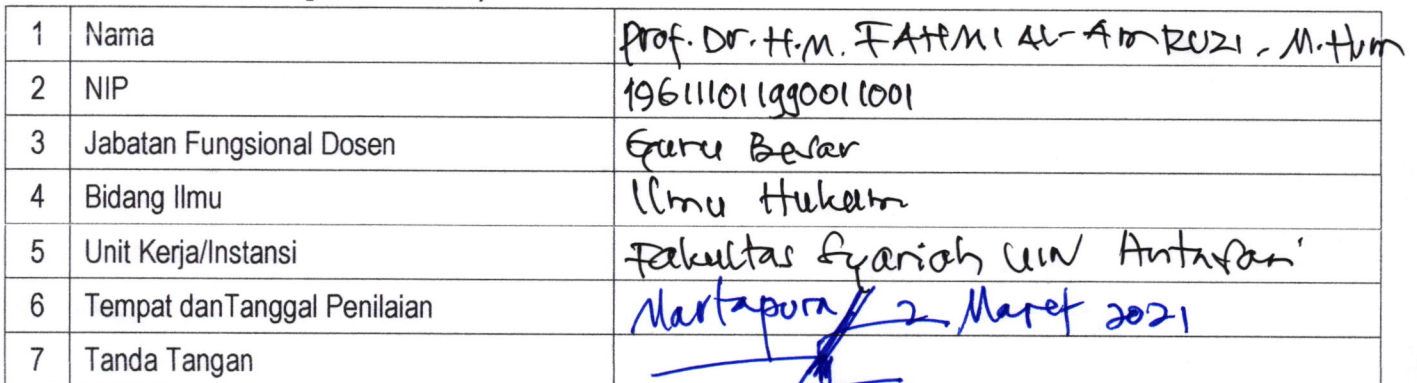 1 Nama Prof. Dr. H.M. FAHMI AL-AMRUZI, M.Hum
2 NIP 196111011990011001
3 Jabatan Fungsional Dosen Guru Besar
4 Bidang Ilmu Ilmu Hukum
5 Unit Kerja/Instansi Fakultas Syariah UIN Antasari
6 Tempat danTanggal Penilaian Martapura, 2 Maret 2021
7 Tanda Tangan